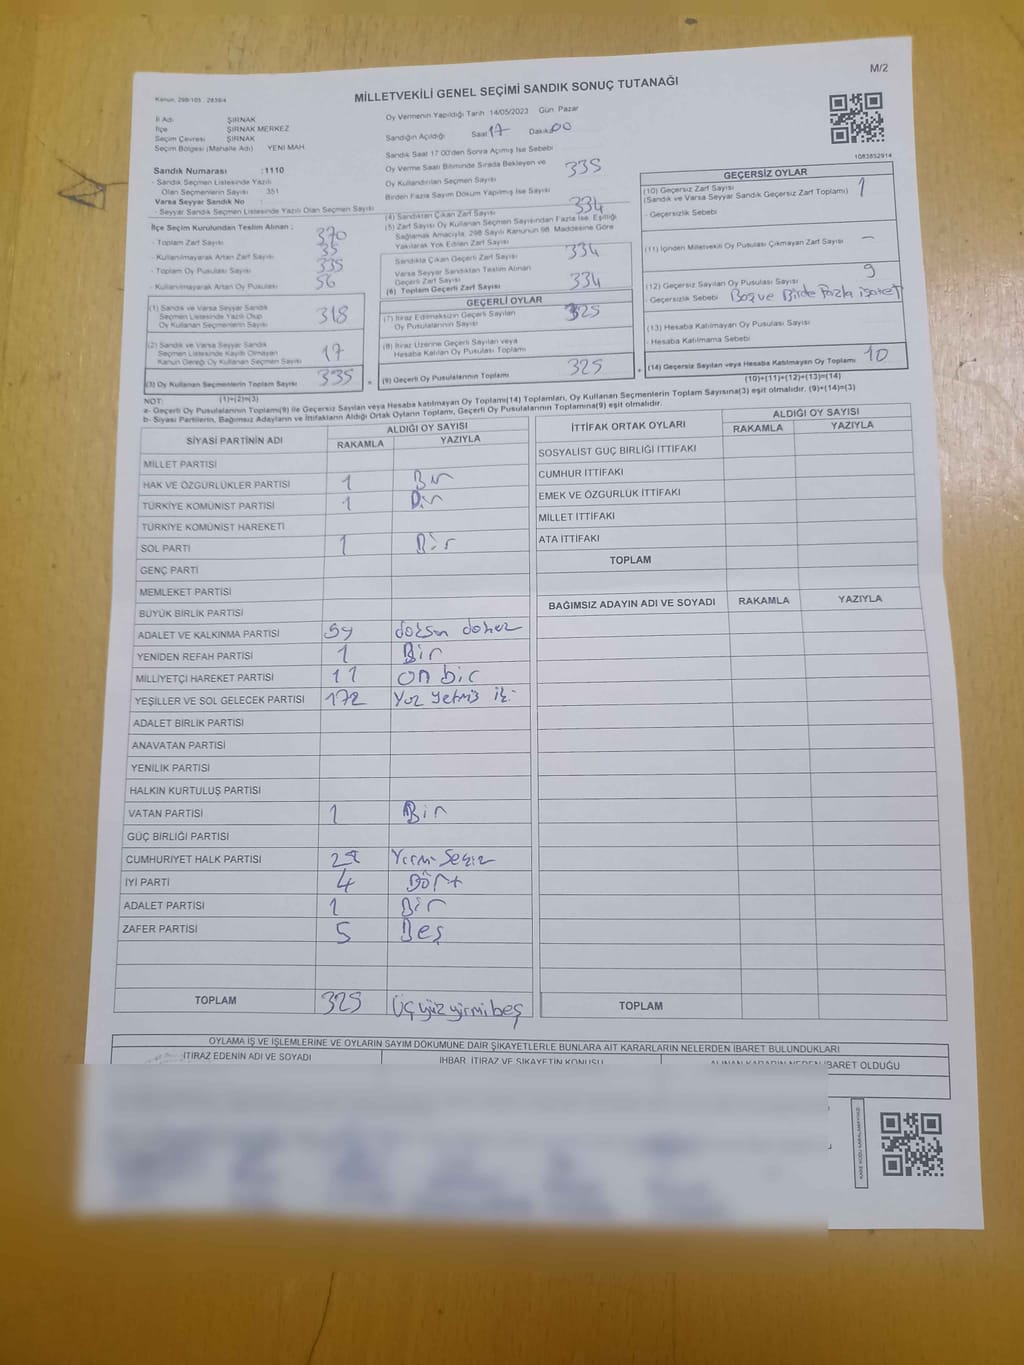 M/2
Kanun, 298/105 : 2839/4
MİLLETVEKİLİ GENEL SEÇİMİ SANDIK SONUÇ TUTANAĞI
İl Adı ŞIRNAK
İlçe ŞIRNAK MERKEZ
Seçim Çevresi ŞIRNAK
Seçim Bölgesi (Mahalle Adı) YENİ MAH.
Sandık Numarası :1110
- Sandık Seçmen Listesinde Yazılı
Olan Seçmenlerin Sayısı 351
Varsa Seyyar Sandık No :
- Seyyar Sandık Seçmen Listesinde Yazılı Olan Seçmen Sayısı
İlçe Seçim Kurulundan Teslim Alınan ;
- Toplam Zarf Sayısı 370
- Kullanılmayarak Artan Zarf Sayısı 35
- Toplam Oy Pusulası Sayısı
- Kullanılmayarak Artan Oy Pusulası 56
(1) Sandık ve Varsa Seyyar Sandık
Seçmen Listesinde Yazılı Olup
Oy Kullanan Seçmenlerin Sayısı 318
(2) Sandık ve Varsa Seyyar Sandık
Seçmen Listesinde Kayıtlı Olmayan
Kanun Gereği Oy Kullanan Seçmen Sayısı 17
(3) Oy Kullanan Seçmenlerin Toplam Sayısı 335
(1)+(2)=(3)
Oy Vermenin Yapıldığı Tarih 14/05/2023 Gün: Pazar
Sandığın Açıldığı Saat 17 Dakika 00
Sandık Saat 17:00'den Sonra Açılmış İse Sebebi
Oy Verme Saati Bitiminde Sırada Bekleyen ve
Oy Kullandırılan Seçmen Sayısı 335
Birden Fazla Sayım Döküm Yapılmış İse Sayısı
(4) Sandıktan Çıkan Zarf Sayısı 334
(5) Zarf Sayısı Oy Kullanan Seçmen Sayısından Fazla İse, Eşitliği
Sağlamak Amacıyla, 298 Sayılı Kanunun 98. Maddesine Göre
Yakılarak Yok Edilen Zarf Sayısı
Sandıkta Çıkan Geçerli Zarf Sayısı 334
Varsa Seyyar Sandıktan Teslim Alınan
Geçerli Zarf Sayısı
(6) Toplam Geçerli Zarf Sayısı 334
GEÇERLİ OYLAR
(7) İtiraz Edilmeksizin Geçerli Sayılan
Oy Pusulalarının Sayısı 325
(8) İtiraz Üzerine Geçerli Sayılan veya
Hesaba Katılan Oy Pusulası Toplamı
(9) Geçerli Oy Pusulalarının Toplamı 325
1083852914
GEÇERSİZ OYLAR
(10) Geçersiz Zarf Sayısı
(Sandık ve Varsa Seyyar Sandık Geçersiz Zarf Toplamı) 1
- Geçersizlik Sebebi
(11) İçinden Milletvekili Oy Pusulası Çıkmayan Zarf Sayısı -
(12) Geçersiz Sayılan Oy Pusulası Sayısı 9
- Geçersizlik Sebebi Boş ve Birde Fazla işaret
(13) Hesaba Katılmayan Oy Pusulası Sayısı
- Hesaba Katılmama Sebebi
(14) Geçersiz Sayılan veya Hesaba Katılmayan Oy Toplamı 10
(10)+(11)+(12)+(13)=(14)
NOT:
a- Geçerli Oy Pusulaları Toplamı(9) ile Geçersiz Sayılan veya Hesaba Katılmayan Oy Toplamı(14) Toplamları, Oy Kullanan Seçmenlerin Toplam Sayısına(3) eşit olmalıdır. (9)+(14)=(3)
b- Siyasi Partilerin, Bağımsız Adayların ve İttifakların Aldığı Ortak Oyların Toplamı, Geçerli Oy Pusulalarının Toplamına(9) eşit olmalıdır.
SİYASİ PARTİNİN ADI ALDIĞI OY SAYISI
RAKAMLA YAZIYLA
MİLLET PARTİSİ
HAK VE ÖZGÜRLÜKLER PARTİSİ 1 Bir
TÜRKİYE KOMÜNİST PARTİSİ 1 Bir
TÜRKİYE KOMÜNİST HAREKETİ
SOL PARTİ 1 Bir
GENÇ PARTİ
MEMLEKET PARTİSİ
BÜYÜK BİRLİK PARTİSİ
ADALET VE KALKINMA PARTİSİ
YENİDEN REFAH PARTİSİ 1 Bir
MİLLİYETÇİ HAREKET PARTİSİ 11 on bir
YEŞİLLER VE SOL GELECEK PARTİSİ 172 Yüz yetmiş iki
ADALET BİRLİK PARTİSİ
ANAVATAN PARTİSİ
YENİLİK PARTİSİ
HALKIN KURTULUŞ PARTİSİ
VATAN PARTİSİ 1 Bir
GÜÇ BİRLİĞİ PARTİSİ
CUMHURİYET HALK PARTİSİ 28 Yirmi Sekiz
İYİ PARTİ 4 Dört
ADALET PARTİSİ 1 Bir
ZAFER PARTİSİ 5 Beş
TOPLAM 325 Üçyüzyirmibeş
İTTİFAK ORTAK OYLARI ALDIĞI OY SAYISI
RAKAMLA YAZIYLA
SOSYALİST GÜÇ BİRLİĞİ İTTİFAKI
CUMHUR İTTİFAKI
EMEK VE ÖZGÜRLÜK İTTİFAKI
MİLLET İTTİFAKI
ATA İTTİFAKI
TOPLAM
BAĞIMSIZ ADAYIN ADI VE SOYADI RAKAMLA YAZIYLA
TOPLAM
OYLAMA İŞ VE İŞLEMLERİNE VE OYLARIN SAYIM DÖKÜMÜNE DAİR ŞİKAYETLERLE BUNLARA AİT KARARLARIN NELERDEN İBARET BULUNDUKLARI
İTİRAZ EDENİN ADI VE SOYADI İHBAR, İTİRAZ VE ŞİKAYETİN KONUSU ALINAN KARARIN NEDEN İBARET OLDUĞU
KARE KODU KARALAMAYINIZ!